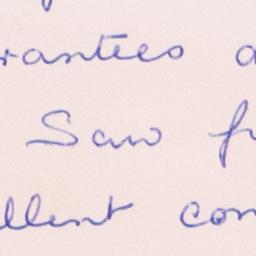 rantees a
Saw fr
ellent com